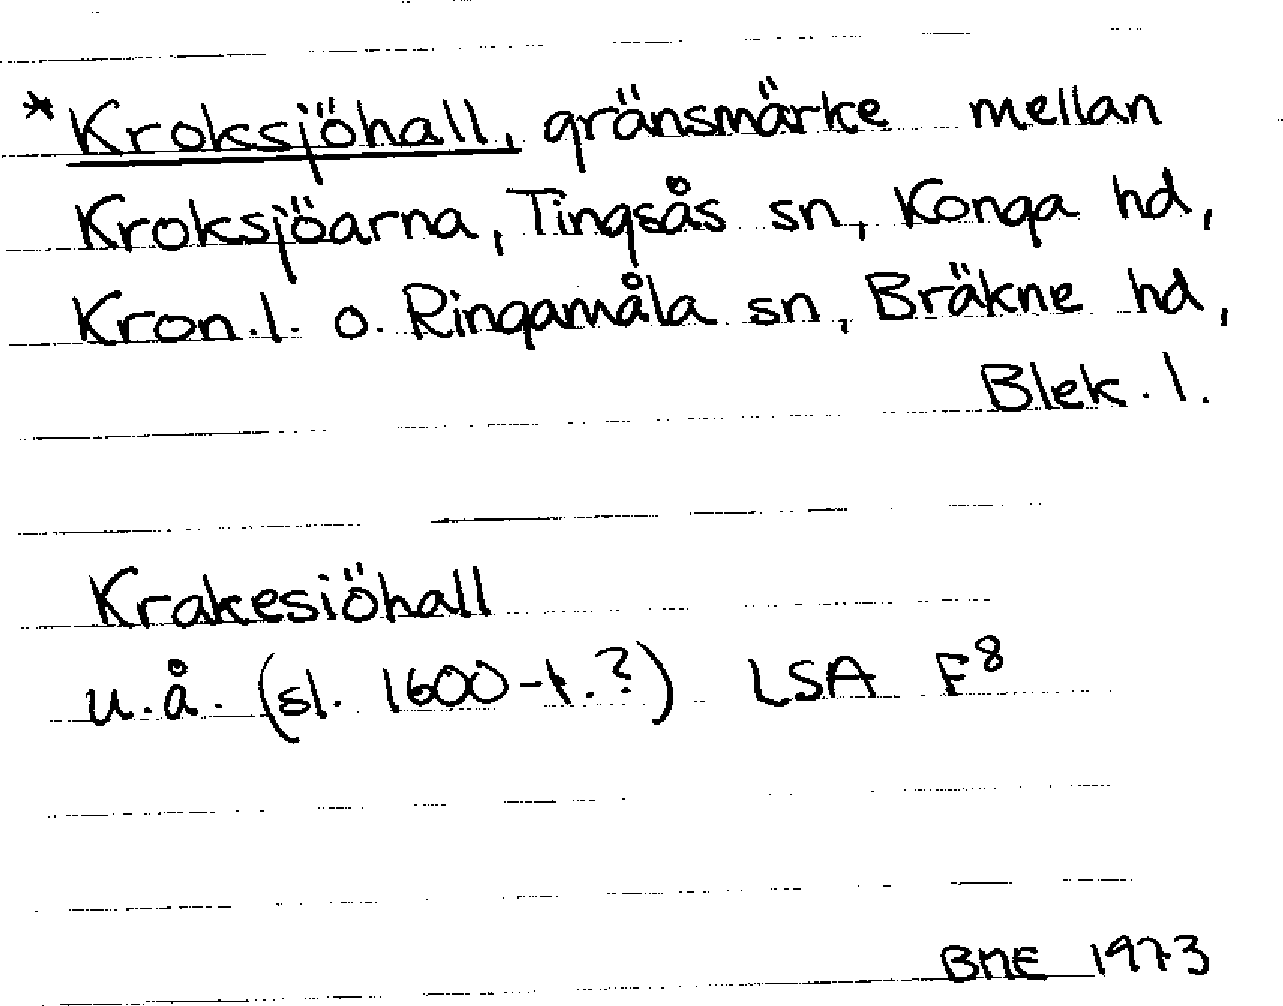 *Kroksjöhall, gränsmärke mellan
Kroksjöarna, Tingsås sn, Konga hd,
Kron.l. o. Ringamåla sn, Bräkne hd,
Blek.l.
Krakesiöhall
u.å. (sl. 1600-t.?) LSA F8
BNE 1973